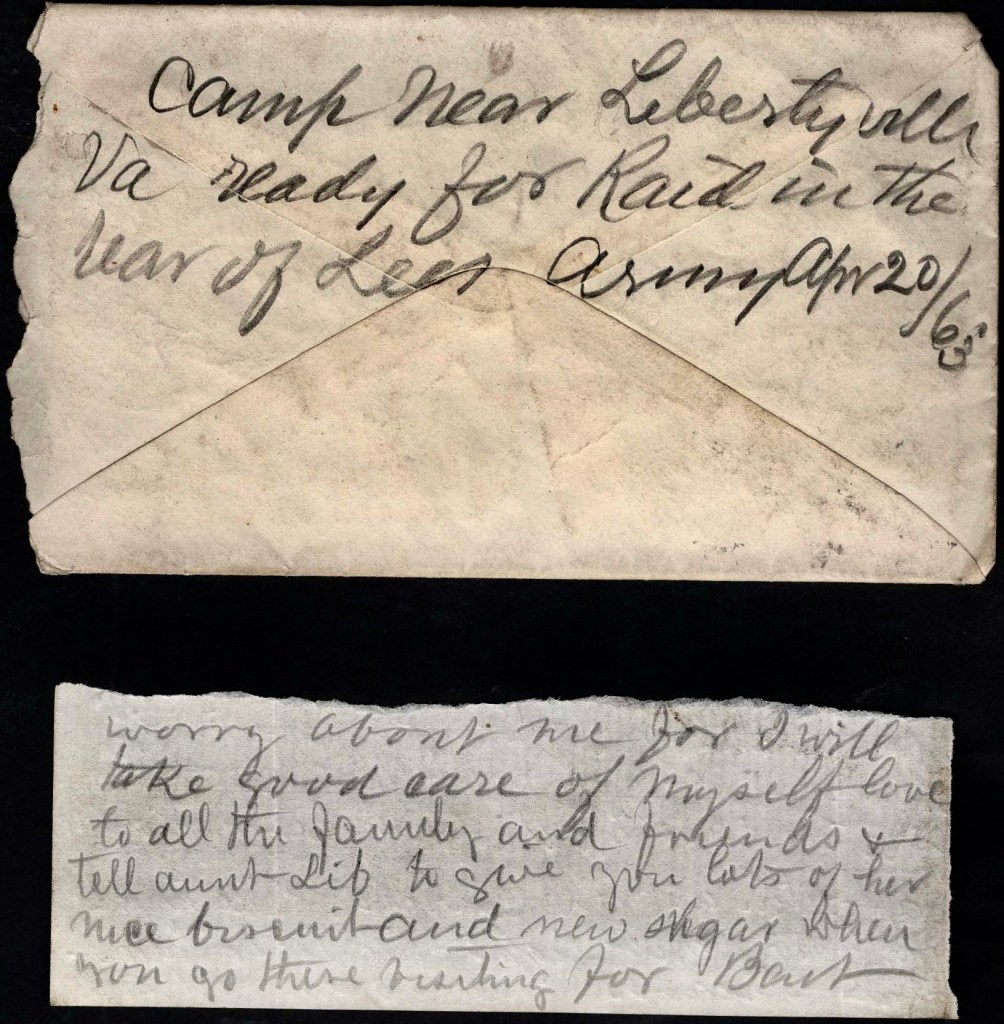 Camp Near Libertyvill
Va ready for Raid in the
rear of Lees Army Apr 20/63
worry about me for I will
take good care of myself love
to all the family and friends &
tell aunt Lib to give you lots of her
nice biscuit and new shgar when
you go there visiting for Bart